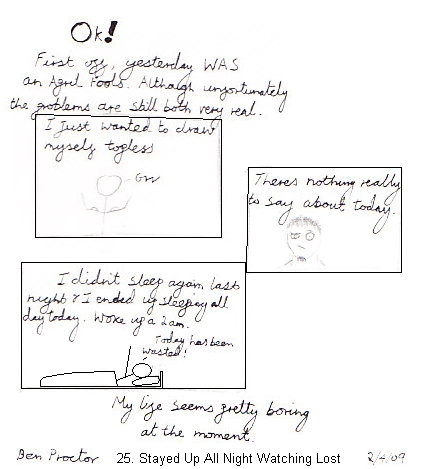 Ok!
First off, yesterday WAS
an April Fools. Although unfortunately
the problems are still both very real.
I Just wanted to draw
myself topless
Grr
Theres nothing really
to say about today.
I didn't sleep again last
night & I ended up sleeping all
day today. Woke up a 2am.
Today has been
wasted!
My life seems pretty boring
at the moment.
Ben Proctor
25. Stayed Up All Night Watching Lost
2/4/09